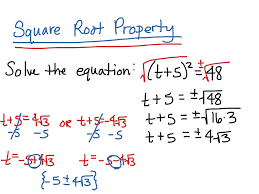 Square Root Property
Solve the equation: √(t+5)² = ±√48
t+5 = ±√48
t+5 = ±√16·3
t+5 = ±4√3
t+5=4√3 or t+5=-4√3
-5 -5 -5 -5
t=-5+4√3 t=-5-4√3
{-5±4√3}